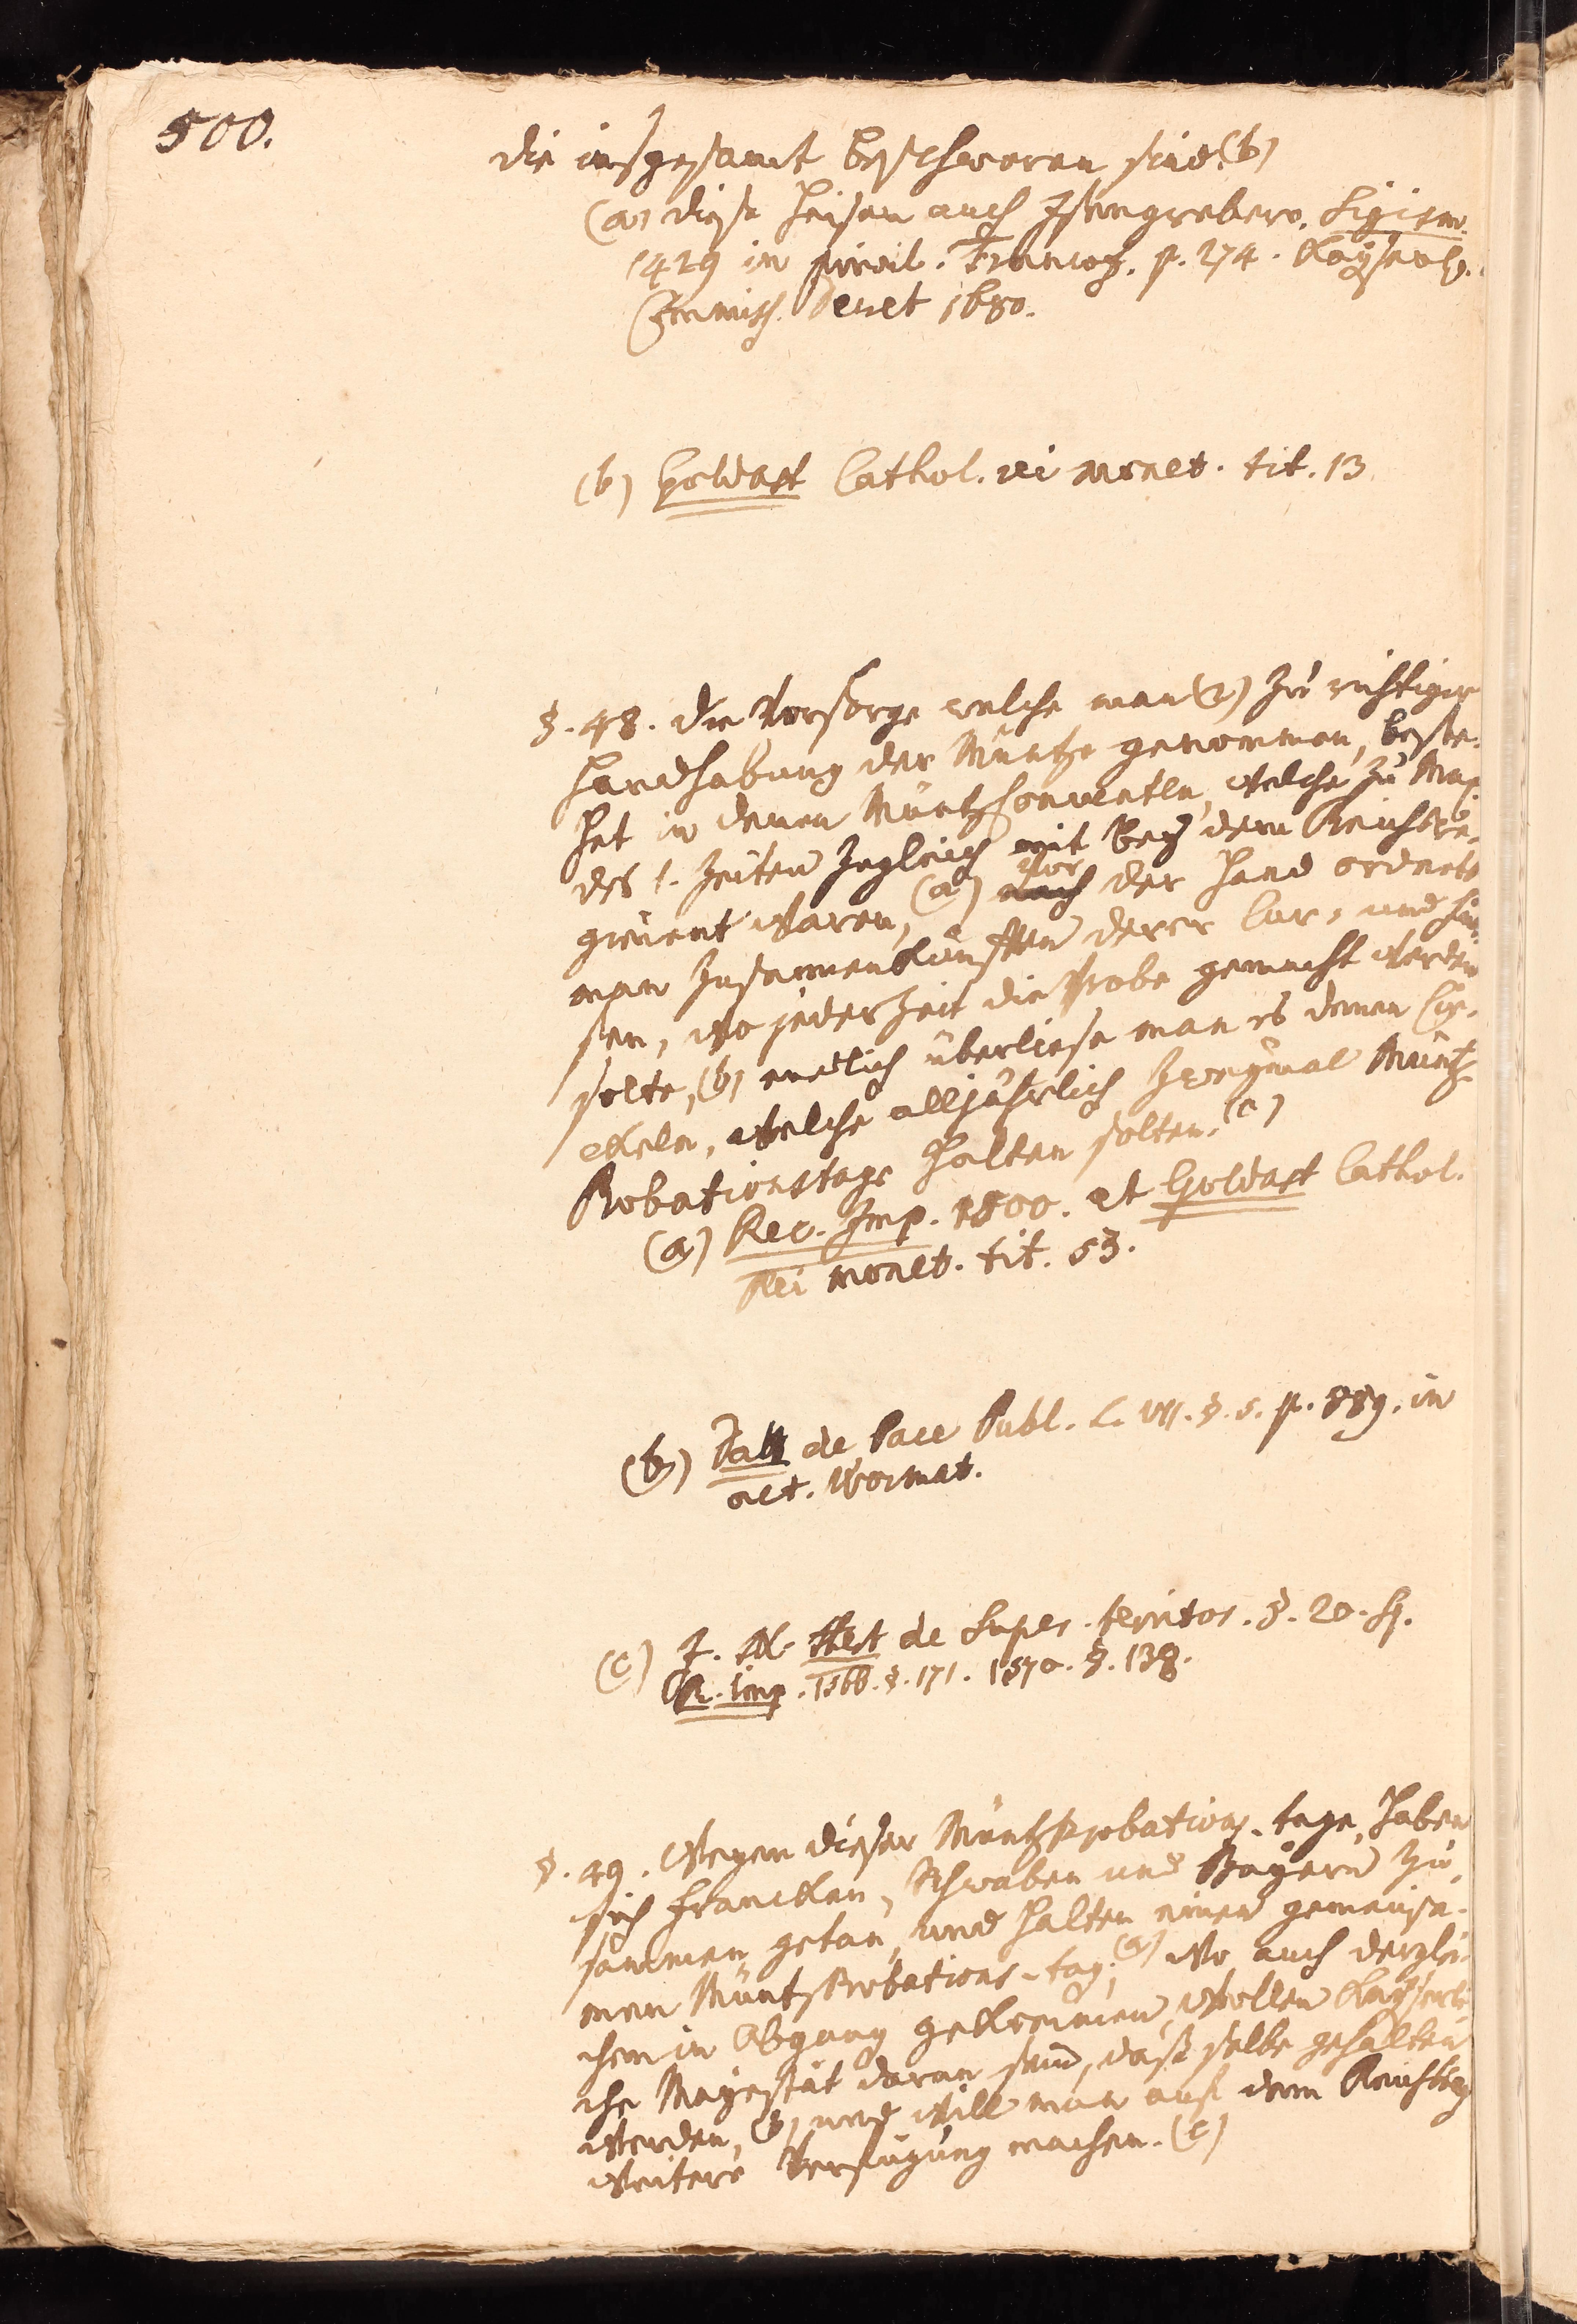 500.
die insgesamt beschworen sind.(b)
(a) diese heisen auch Isengrebere. Sigism.
1429 in privil. Francof. p. 274. Kayserl.
Commiss. Decret 1680.
(b) Goldast Cathol. rei monet. tit. 13.
§. 48. Die Vorsorge welche man (2) zu richtiger
Handhabung der Müntze genommen, beste-
het in denen Müntzconventen, welche zu Max
des 1. Zeiten zugleich mit bey dem Reichsre-
giment waren, (a) vor der Hand ordnete
man Zusammenkünfften derer Cur- und Für-
sten, wo jederzeit die Probe gemacht werden
solte, (b) endlich überliese man es denen Cir-
ckeln, welche alljährlich zweymal Müntz-
Probationstage halten solten. (c)
(a) Rec. Imp. 1500. et Goldast Cathol.
Rei monet. tit. 53.
(b) Datt de Pace Publ. L. VII. §. 5. p. 889. in
act. Wormat.
(c) de Super. territor. §. 20. sq.
R. Imp. 1566. §. 171. 1570. §. 138.
§. 49. Wegen dieser Müntzprobations-tage, haben
sich Francken, Schwaben und Bayern zu-
sammen getan, und halten einen gemeinsa-
men Müntzprobations-tag, (a) wo auch derglei-
chen in Abgang gekommen, wollen Kayserli-
che Mayestät daran sein, daß selbe gehalten
werden, (b) und will man auf dem Reichstag
weitere Verfügung machen. (c)